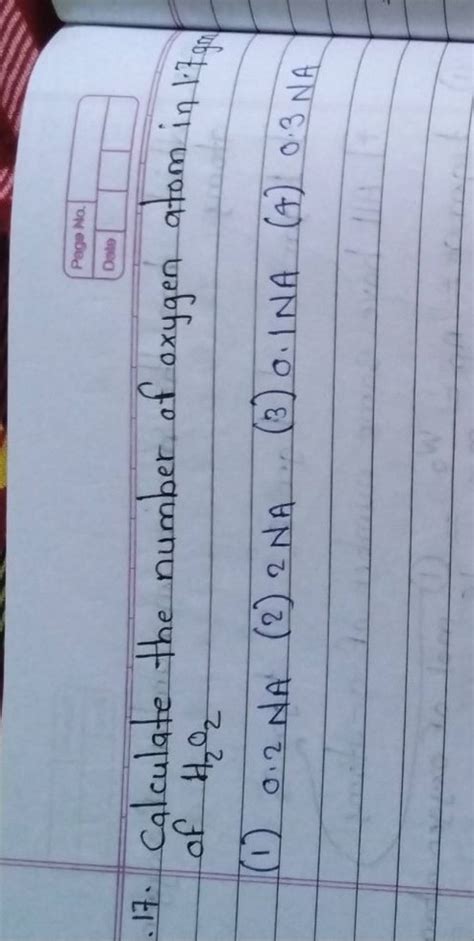 Page No.
Date
.17. Calculate the number of oxygen atom in 1.7gm
of H₂O₂
(1) 0.2 NA (2) 2 NA (3) 0.1NA (4) 0.3 NA